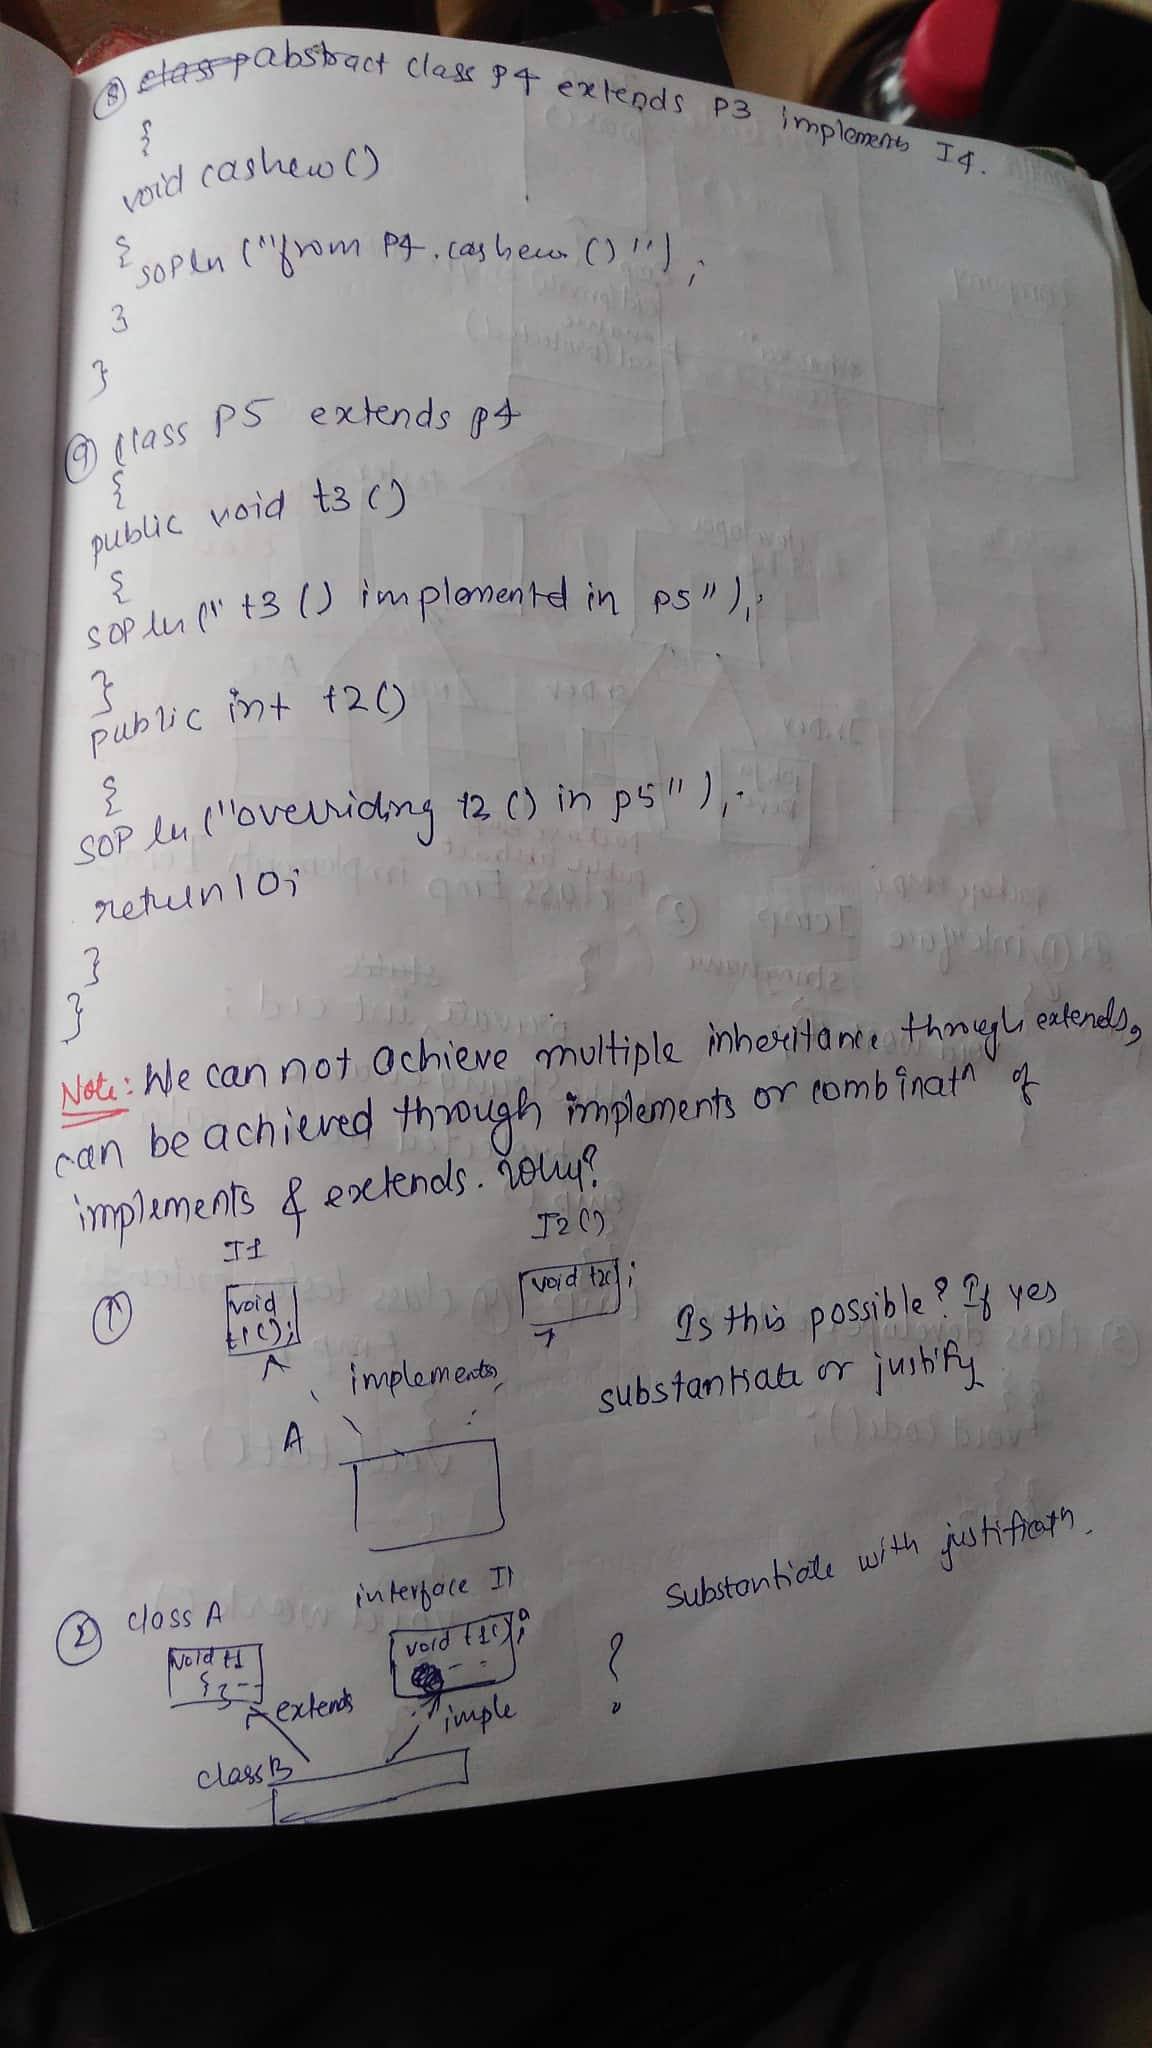 ⑧ class p abstract class P4 extends P3 implements I4.
{
void cashew()
{
sopln ("from P4.cashew()");
}
}
⑨ class P5 extends p4
{
public void t3()
{
SOPln(" t3() implementd in P5");
}
public int t2()
{
SOPln("overriding t2() in p5");
return 10;
}
}
Note: We can not achieve multiple inheritance through extends,
can be achieved through implements or combinatn of
implements & extends. Why?
I1 I2()
① void t1(); void t2();
Is this possible? If yes
substantiate or justify
implements
A
② class A interface I1
Substantiate with justificatn.
void t1 {}-- void t1();
?
extends imple
class B